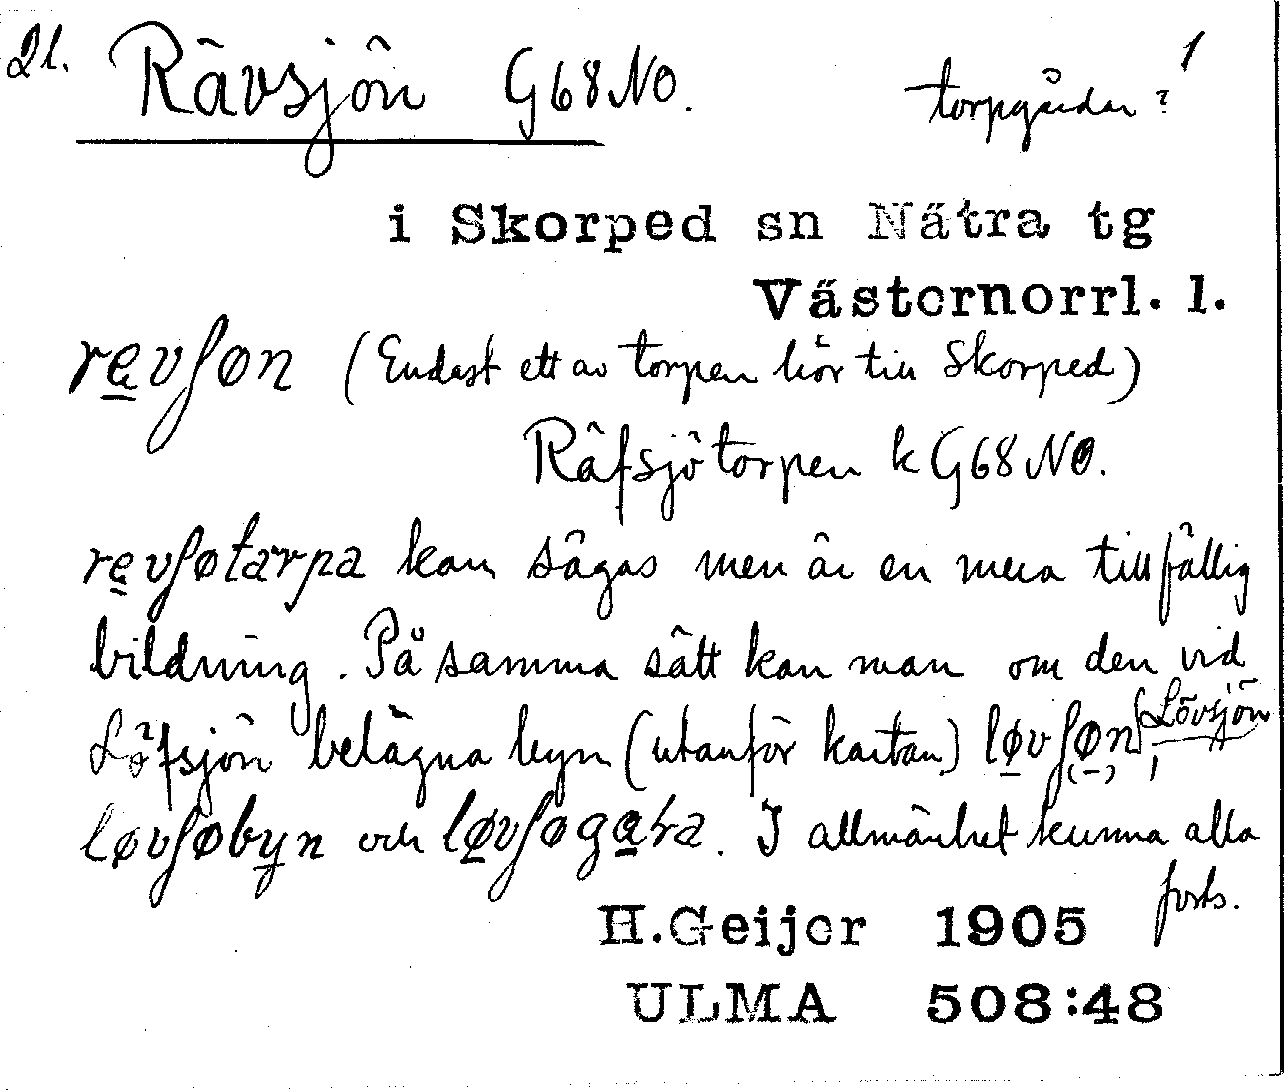 21. Rävsjön G68NO. torpgårdar? 1
i Skorped sn Nätra tg
Västernorrl. l.
revʃøn (Endast ett av torpen hör till Skorped)
Räfsjötorpen k G68NO.
revʃøtarpa kan sägas men är en mera tillfällig
bildning. På samma sätt kan man om den vid
Löfsjön belägna byn (utanför kartan) løvʃøn, Lövsjön
løvʃøbyn och løvʃøgaɽa. I allmänhet kunna alla
forts.
H.Geijer 1905
ULMA 508:48